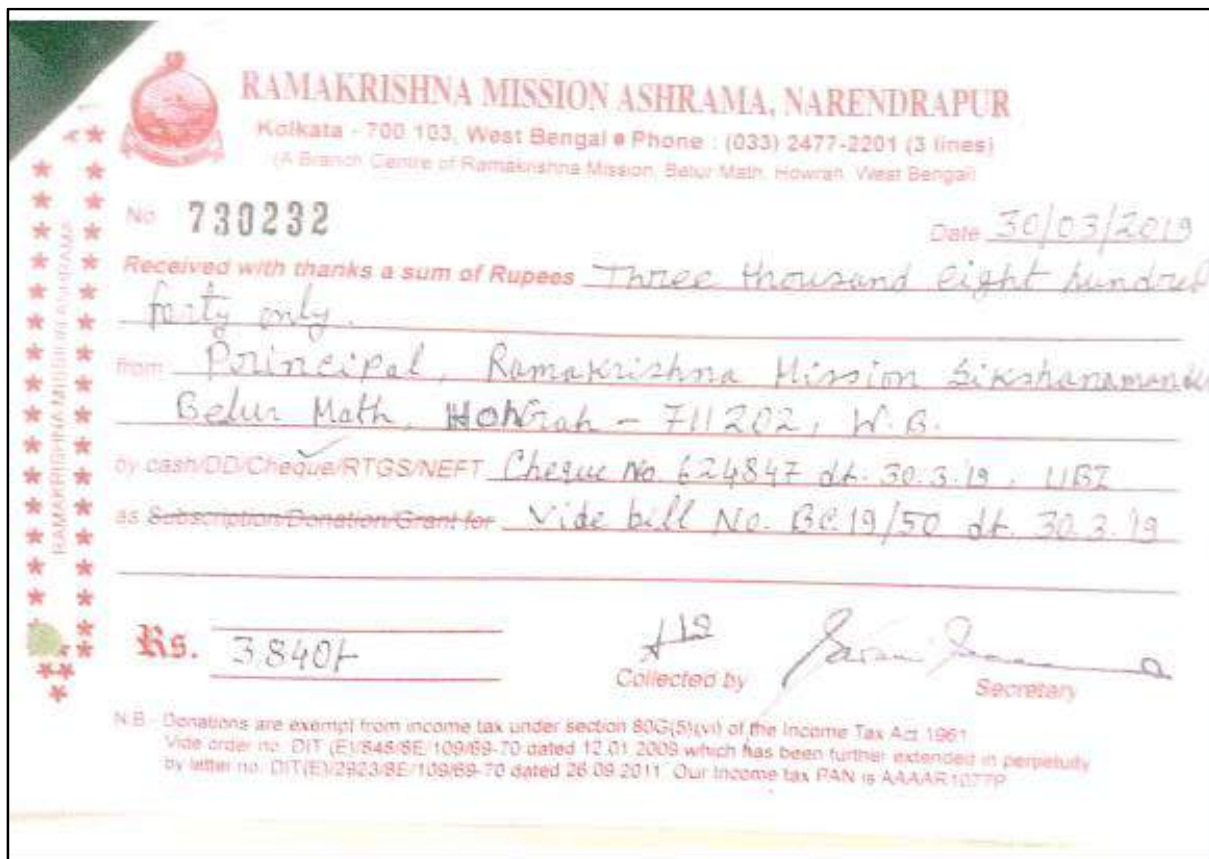 RAMAKRISHNA MISSION ASHRAMA, NARENDRAPUR
Kolkata - 700 103, West Bengal ● Phone : (033) 2477-2201 (3 lines)
(A Branch Centre of Ramakrishna Mission, Belur Math, Howrah, West Bengal)
No 730232
Date 30/03/2019
Received with thanks a sum of Rupees Three thousand eight hundred
forty only.
from Principal, Ramakrishna Mission Sikshanamandir
Belur Math, Howrah - 711202, W.B.
by cash/DD/Cheque/RTGS/NEFT Cheque No. 624847 dt. 30.3.19, UBI
as Subscription/Donation/Grant for Vide bill No. BC.19/50 dt. 30.3.19
Rs. 3840/-
Collected by
Secretary
N.B - Donations are exempt from income tax under section 80G(5)(vi) of the Income Tax Act 1961
Vide order no. DIT (E)/848/8E/109/69-70 dated 12.01.2009 which has been further extended in perpetuity
by letter no. DIT(E)/2923/8E/109/69-70 dated 26.09.2011. Our Income tax PAN is AAAAR1077P
RAMAKRISHNA MISSION ASHRAMA